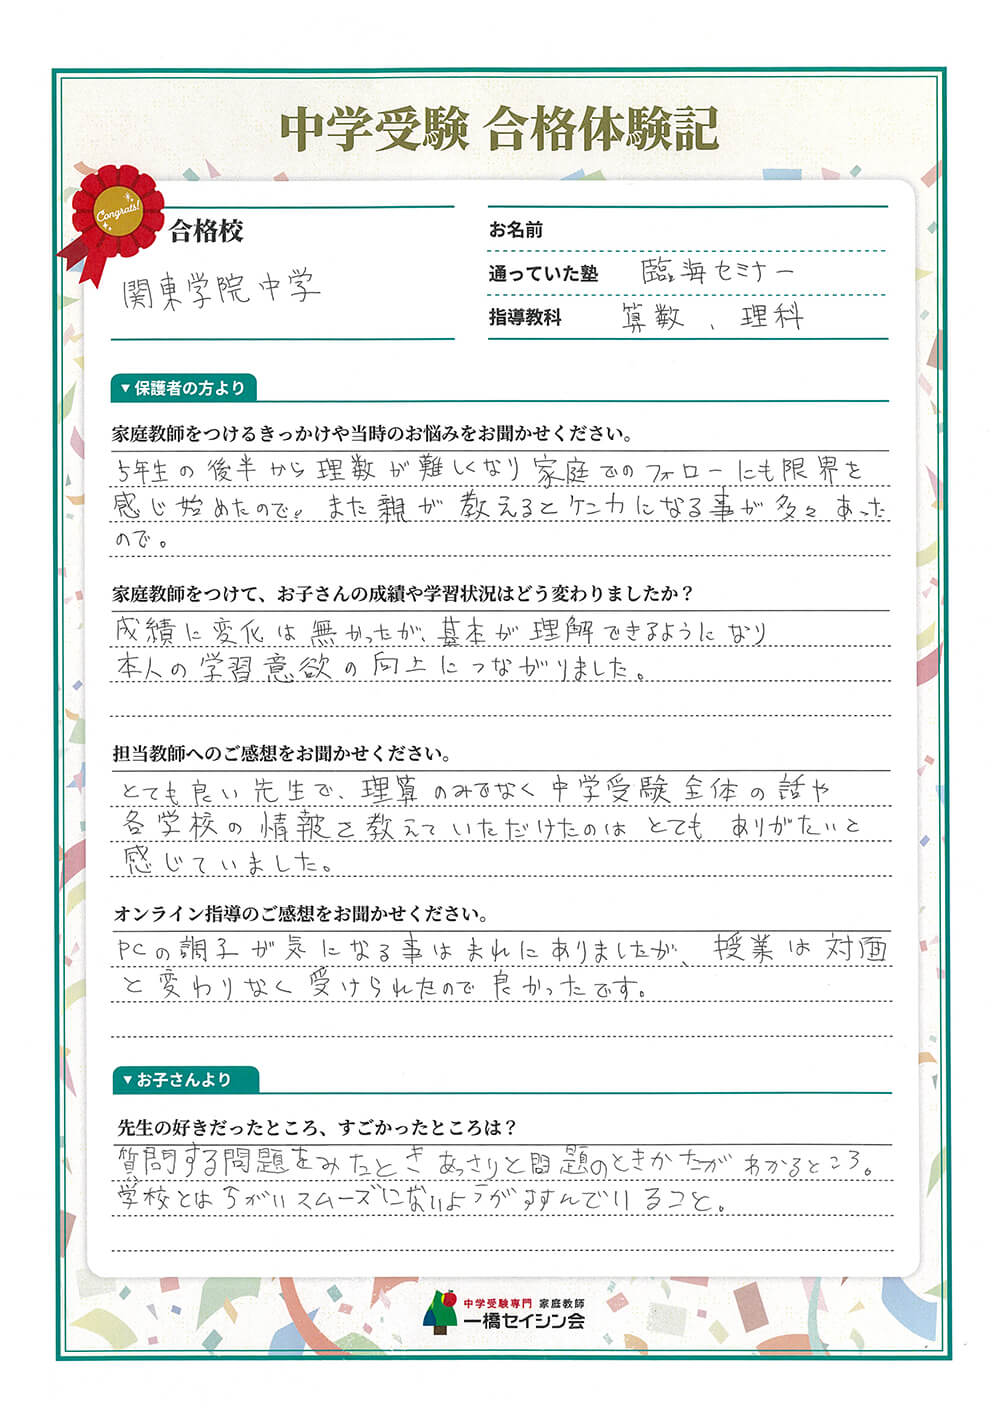 中学受験 合格体験記
Congrats!
合格校
関東学院中学
お名前
通っていた塾 臨海セミナー
指導教科 算数、理科
▼保護者の方より
家庭教師をつけるきっかけや当時のお悩みをお聞かせください。
5年生の後半から理数が難しくなり家庭でのフォローにも限界を
感じ始めたので。また親が教えるとケンカになる事が多々あった
ので。
家庭教師をつけて、お子さんの成績や学習状況はどう変わりましたか?
成績に変化は無かったが、基本が理解できるようになり
本人の学習意欲の向上につながりました。
担当教師へのご感想をお聞かせください。
とても良い先生で、理算のみでなく中学受験全体の話や
各学校の情報を教えていただけたのはとてもありがたいと
感じていました。
オンライン指導のご感想をお聞かせください。
PCの調子が気になる事はまれにありましたが、授業は対面
と変わりなく受けられたので良かったです。
▼お子さんより
先生の好きだったところ、すごかったところは?
質問する問題をみたときあっさりと問題のときかたがわかるところ。
学校とはちがいスムーズにないようがすすんでいること。
中学受験専門 家庭教師
一橋セイシン会